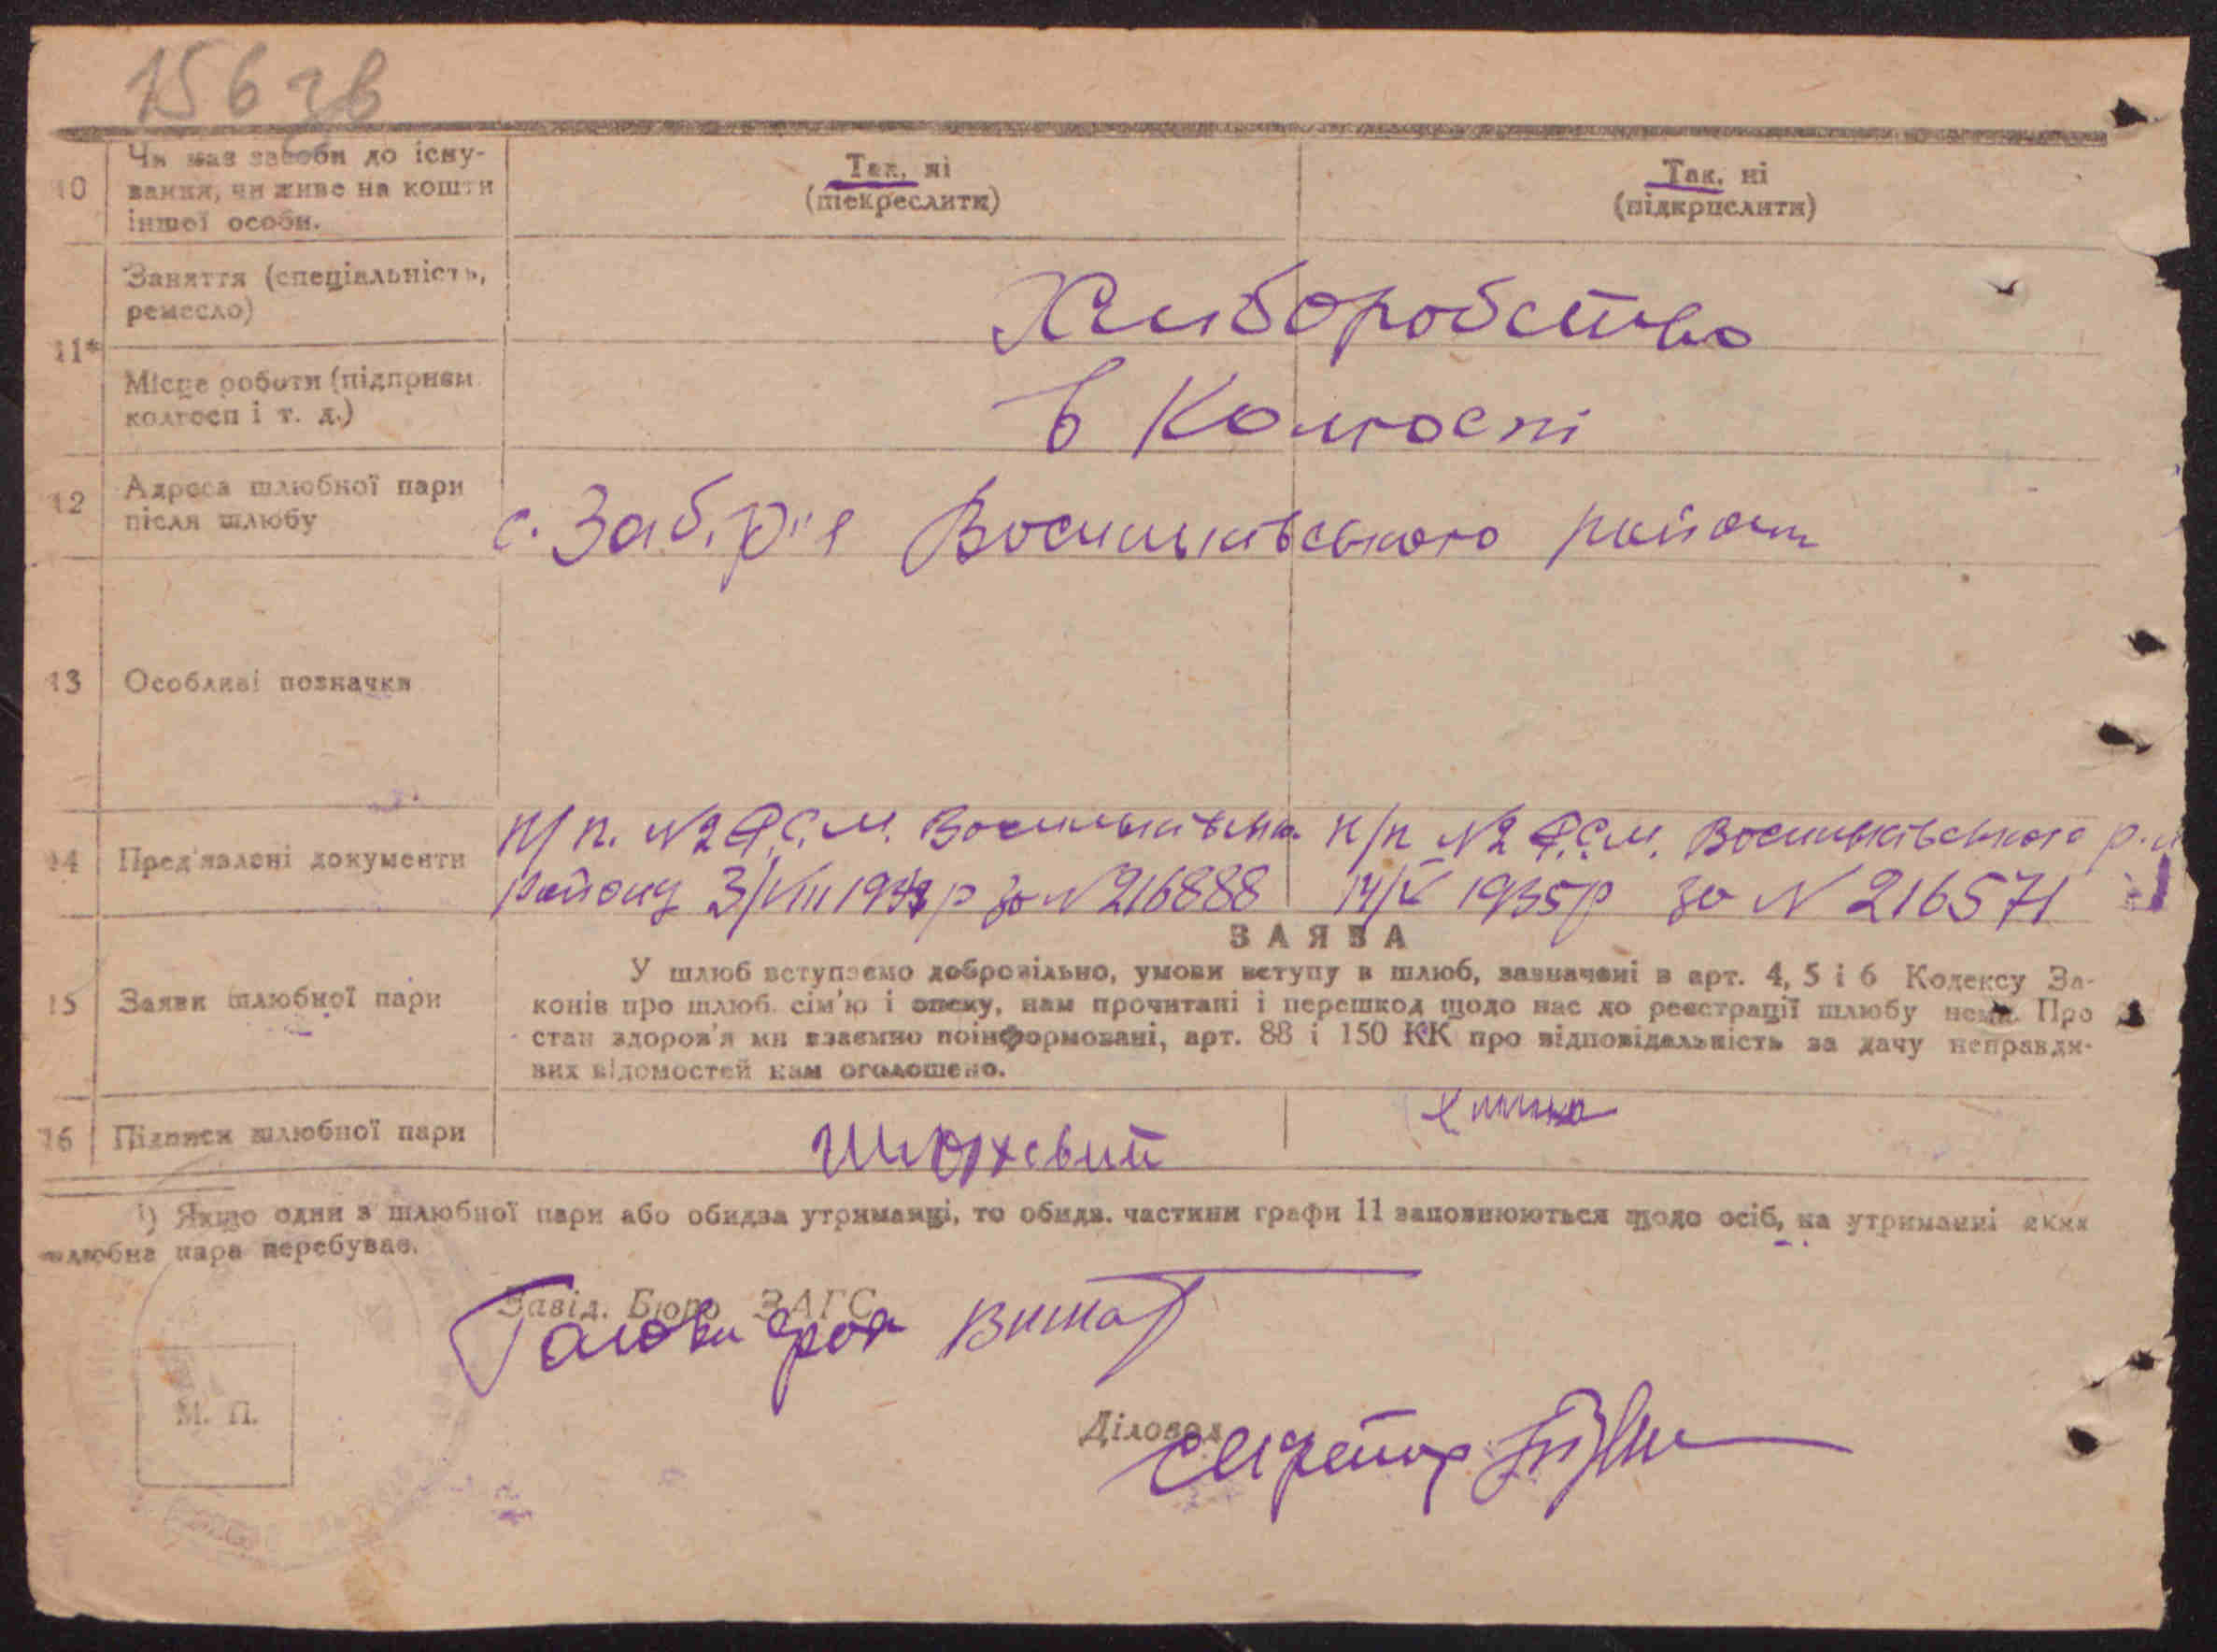 156 зв
10
Чи має засоби до існу-
вання, чи живе на кошти
іншої особи.
Так, ні
(підкреслити)
Так, ні
(підкрислити)
11*
Заняття (спеціальність,
ремесло)
Хліборобство
Місце роботи (підприєм
колгосп і т. д.)
в Колгоспі
12
Адреса шлюбної пари
після шлюбу
с. Забір'я Васильківського району
13
Особливі позначки
14
Пред'явлені документи
п/п. №2 Р.С.М. Васильківськ.
району 3/VIII 193 р за № 216888
п/п №2 Р.С.М. Васильківського р.
14/V 1935 р за № 216571
15
Заяви шлюбної пари
ЗАЯВА
У шлюб вступаємо добровільно, умови вступу в шлюб, зазначені в арт. 4, 5 і 6 Кодексу За-
конів про шлюб. сім'ю і опеку, нам прочитані і перешкод щодо нас до реєстрації шлюбу нема. Про
стан здоров'я ми взаємно поінформовані, арт. 88 і 150 КК про відповідальність за дачу неправди-
вих відомостей нам оголошено.
16
Підписи шлюбної пари
¹) Якщо один з шлюбної пари або обидва утриманці, то обидв. частини графи 11 заповнюються щодо осіб, на утриманні яких
шлюбна пара перебуває.
Завід. Бюро ЗАГС
Голова
М. П.
Діловод
секретар